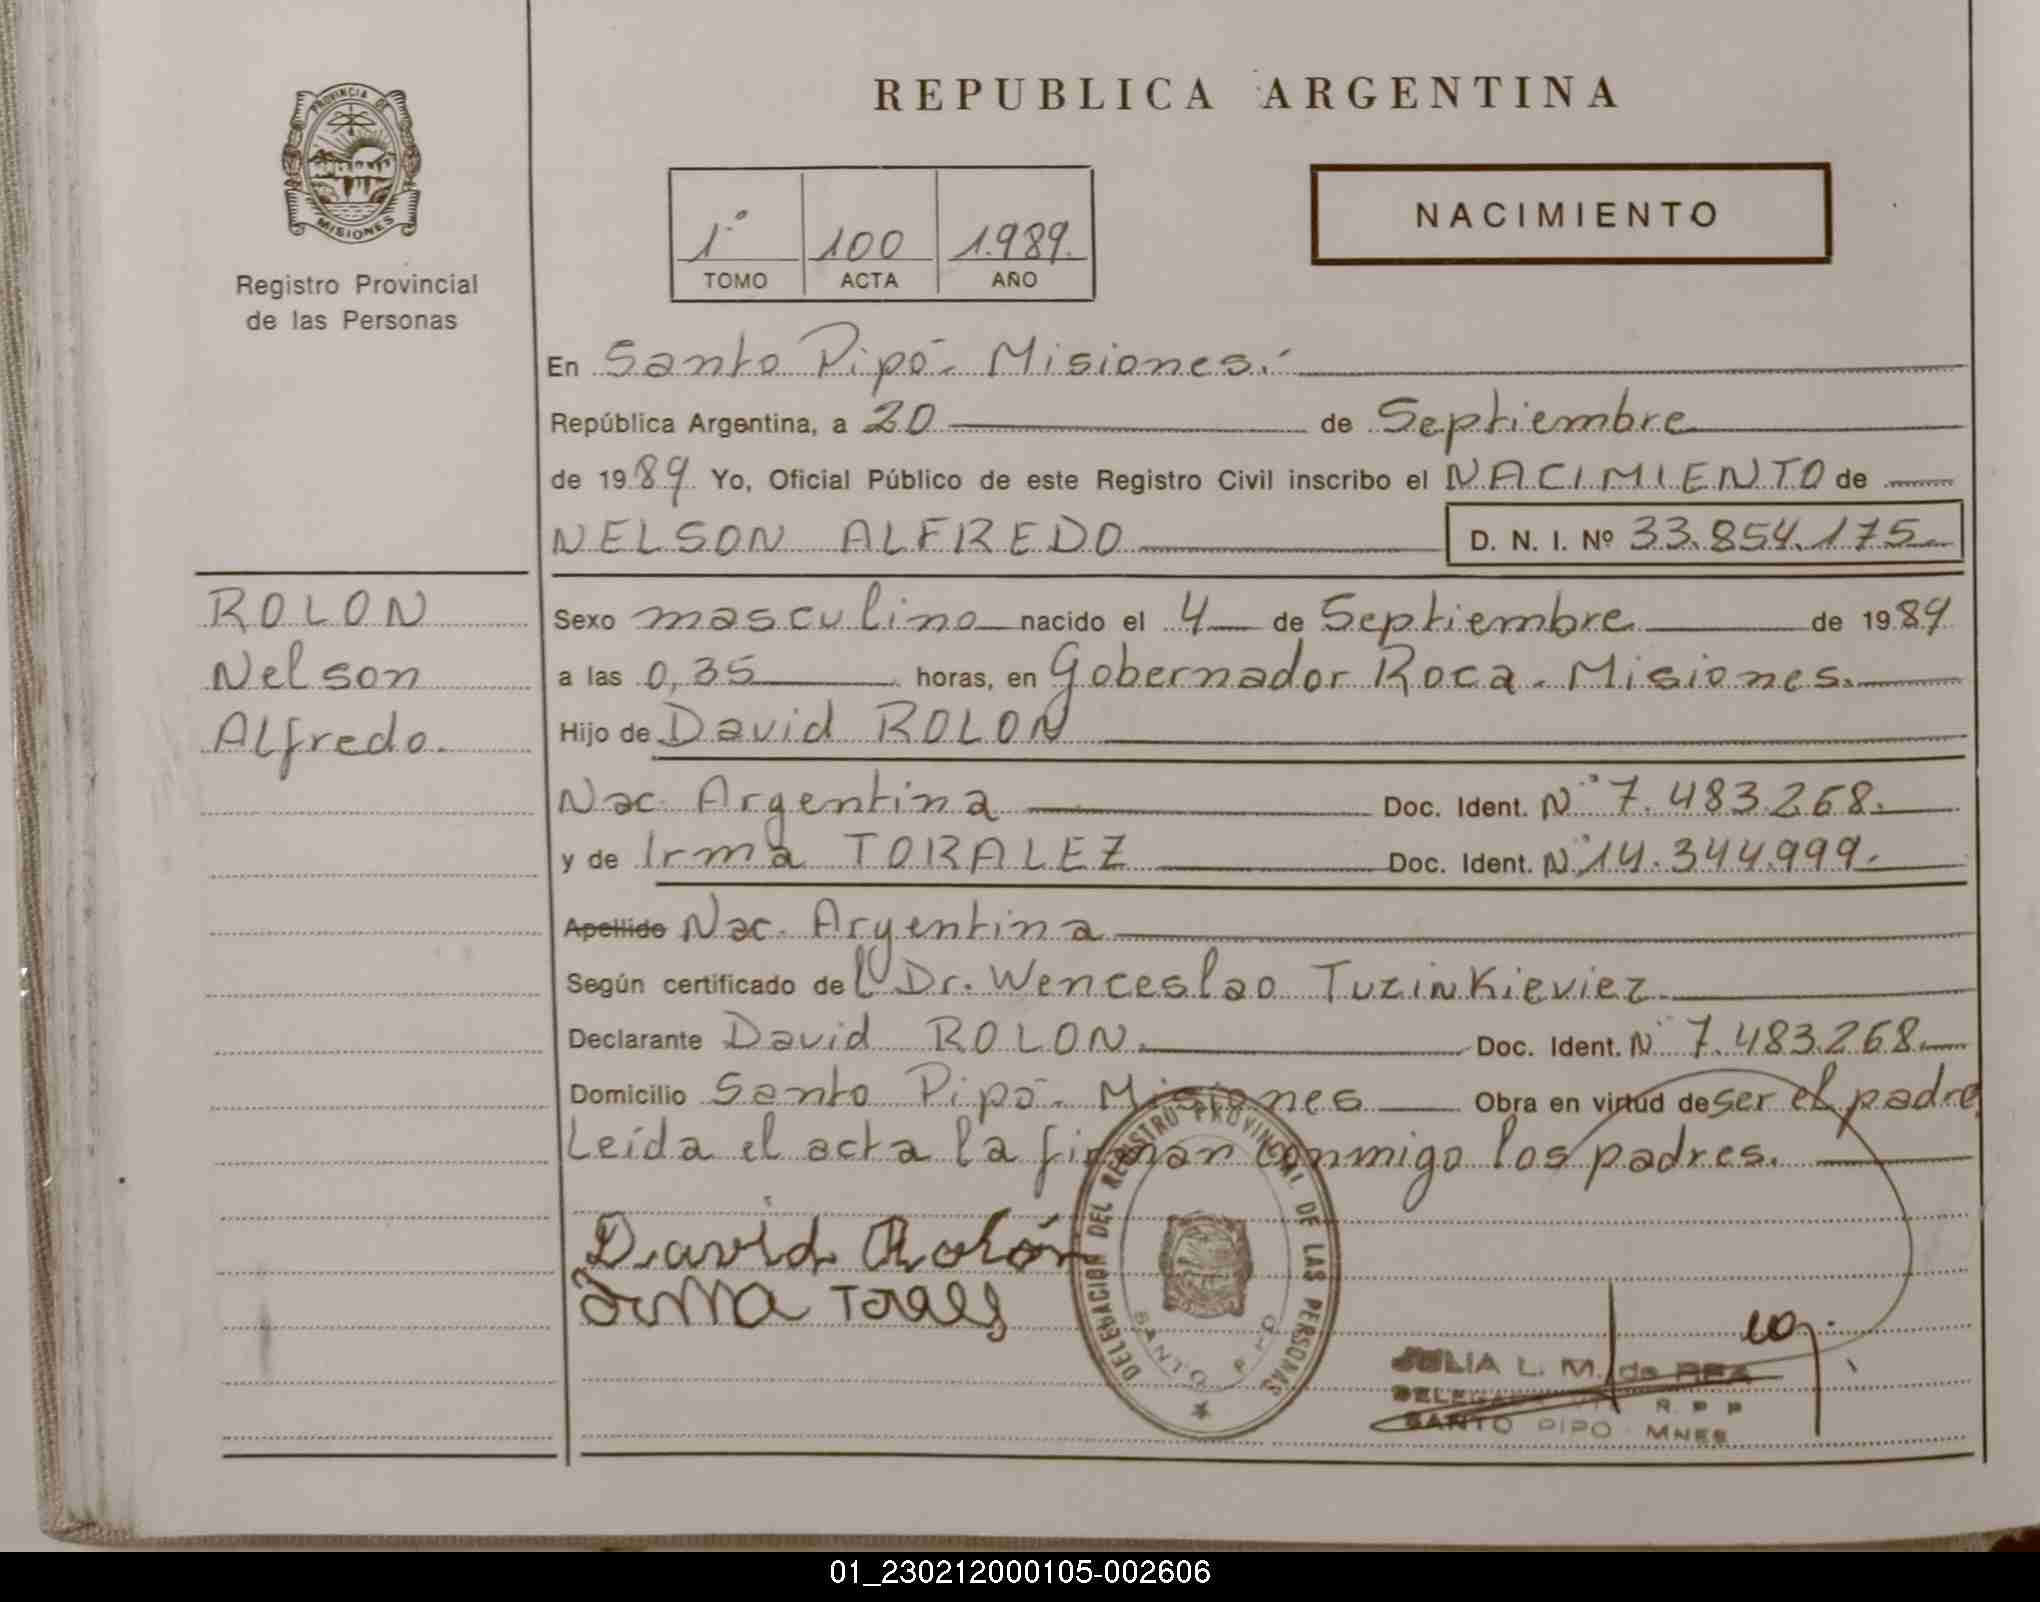 REPUBLICA ARGENTINA
PROVINCIA DE
MISIONES
Registro Provincial
de las Personas
1º 100 1.989.
TOMO ACTA AÑO
NACIMIENTO
En Santo Pipó - Misiones.
República Argentina, a 20 de Septiembre
de 1989 Yo, Oficial Público de este Registro Civil inscribo el NACIMIENTO de
NELSON ALFREDO D. N. I. Nº 33.854.175
ROLON
Nelson
Alfredo.
Sexo masculino nacido el 4 de Septiembre de 1989
a las 0,35 horas, en Gobernador Roca - Misiones.
Hijo de David ROLON
Nac. Argentina Doc. Ident. Nº 7.483.268.
y de Irma TORALEZ Doc. Ident. Nº 14.344.999.
Apellido Nac. Argentina
Según certificado del Dr. Wenceslao Tuzinkieviez
Declarante David ROLON. Doc. Ident. Nº 7.483.268.
Domicilio Santo Pipó - Misiones Obra en virtud de ser el padre
Leída el acta la firman conmigo los padres.
David Rolón
Irma
DELEGACION DEL REGISTRO PROVINCIAL DE LAS PERSONAS
SANTO PIPO
JULIA L. M. de REA
R. P. P
SANTO PIPO - MNES
01_230212000105-002606